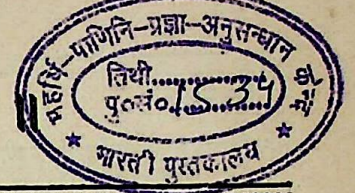 महर्षि-पाणिनि-प्रज्ञा-अनुसन्धान
तिथी..............
पु०सं०1534
* भारती पुस्तकालय *